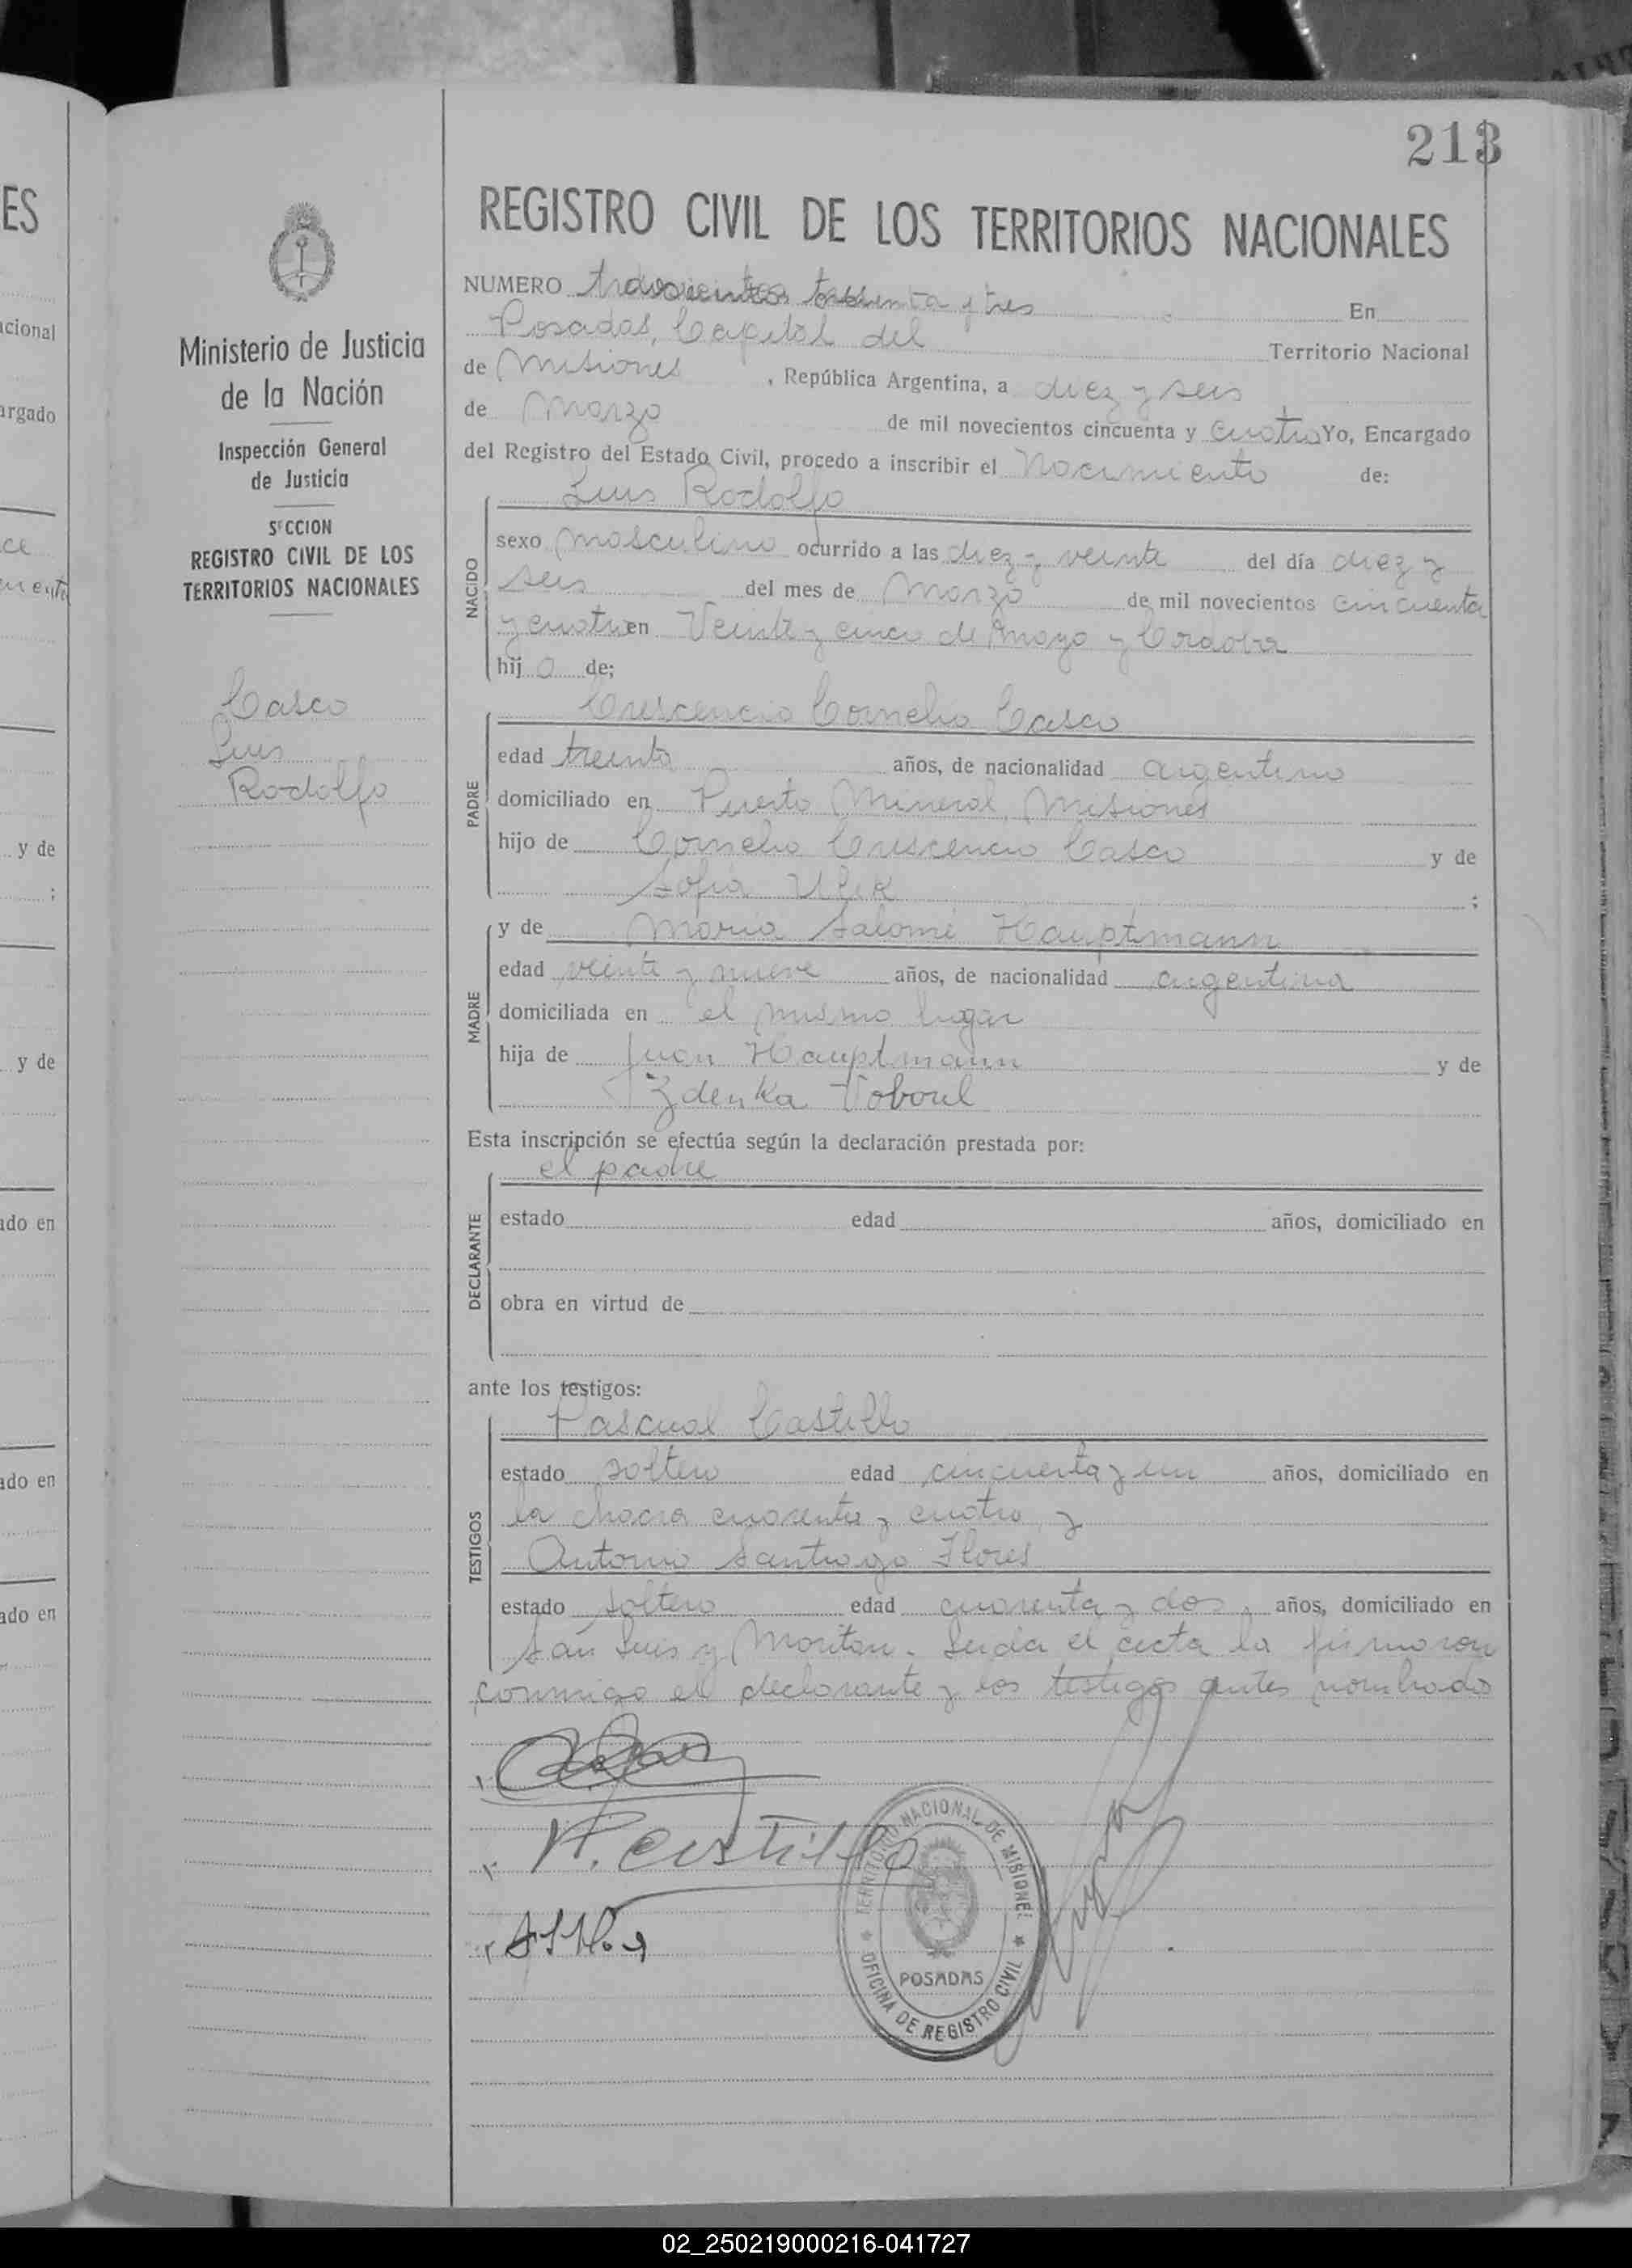 213
ES
REGISTRO CIVIL DE LOS TERRITORIOS NACIONALES
Ministerio de Justicia
de la Nación
Inspección General
de Justicia
SECCION
REGISTRO CIVIL DE LOS
TERRITORIOS NACIONALES
Casco
Luis
Rodolfo
NUMERO y tres En
Posadas, Capital del Territorio Nacional
de Misiones, República Argentina, a diez y seis
de Marzo de mil novecientos cincuenta y cuatro Yo, Encargado
del Registro del Estado Civil, procedo a inscribir el Nacimiento de:
Luis Rodolfo
NACIDO
sexo masculino ocurrido a las diez y veinte del día diez y
seis del mes de Marzo de mil novecientos cincuenta
y cuatro en Veinte y cinco de Mayo y Cordova
hijo de;
Crescencio Cornelio Casco
PADRE
edad treinta años, de nacionalidad argentino
domiciliado en Puerto Mineral, Misiones
hijo de Cornelio Crescencio Casco y de
Sofia ;
y de Maria Salomé Hauptmann
MADRE
edad veinte y nueve años, de nacionalidad argentina
domiciliada en el mismo lugar
hija de Juan Hauptmann y de
Zdenka Voboril
Esta inscripción se efectúa según la declaración prestada por:
el padre
DECLARANTE
estado edad años, domiciliado en
obra en virtud de
ante los testigos:
Pascual Castillo
TESTIGOS
estado soltero edad cincuenta y un años, domiciliado en
la chacra cuarenta y cuatro, y
Antonio Santiago Flores
estado soltero edad cuarenta y dos, años, domiciliado en
San Luis y . Leida el acta la firmaron
conmigo el declarante y los testigos antes nombrado
P. Castillo
TERRITORIO NACIONAL DE MISIONES
POSADAS
OFICINA DE REGISTRO CIVIL
02_250219000216-041727